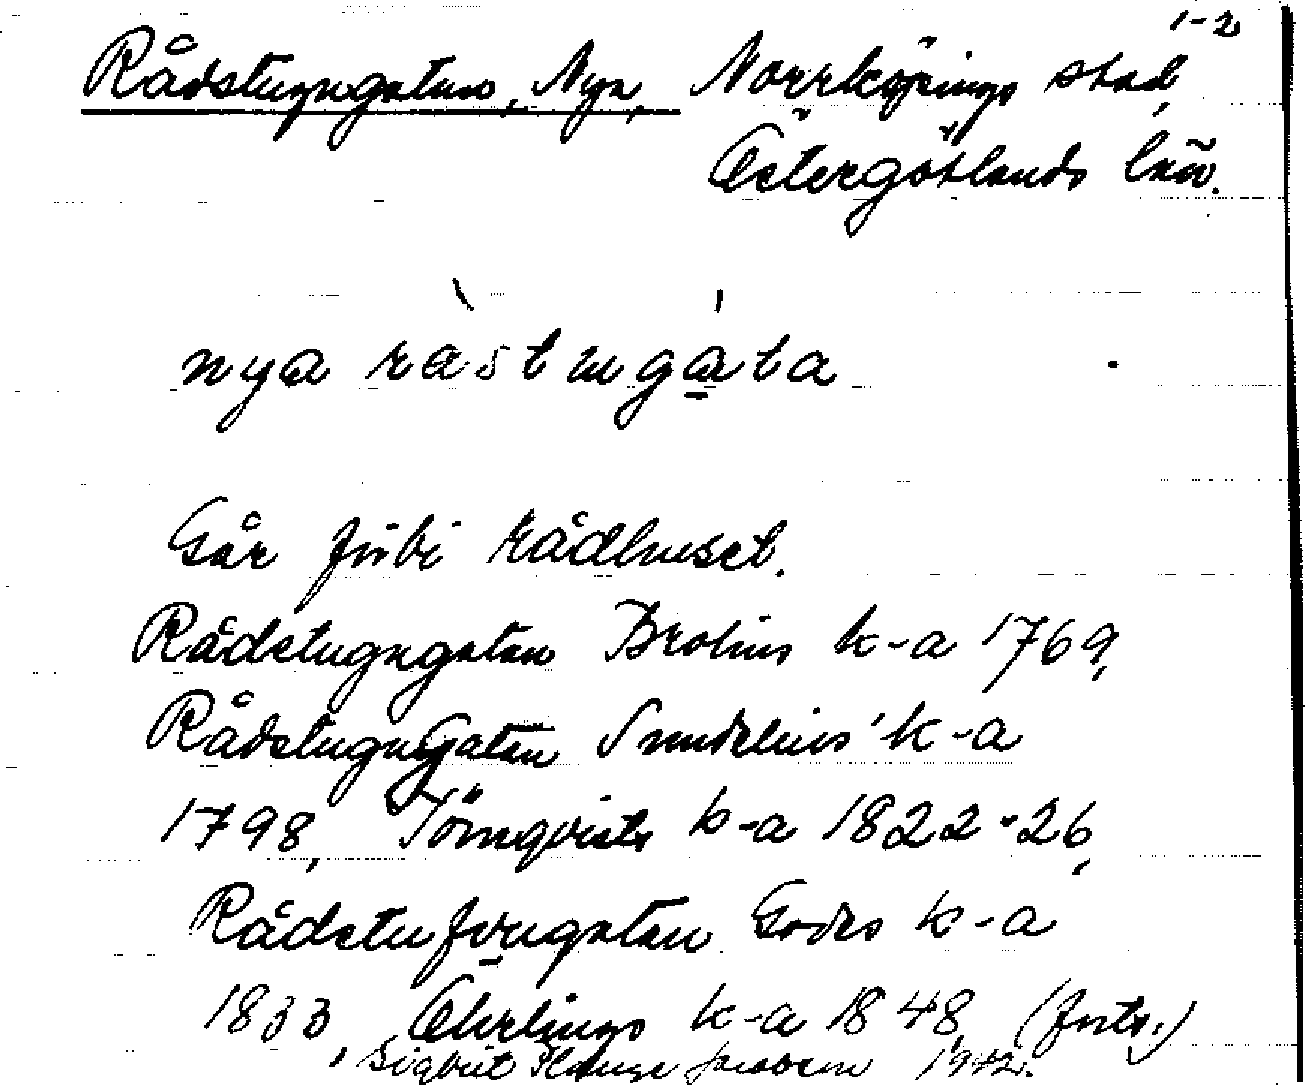 1-2
Rådstugugatan, Nya, Norrköpings stad,
Östergötlands län.
nya råstugata
Går förbi rådhuset.
Rådstugugatan Brolins k-a 1769,
RådstuguGatan Sundelius' k-a
1798, Törnqvists k-a 1822-26,
Rådstufvugatan Godes k-a
1833, Öhrlings k-a 1848, (forts.)
Sigbrit Jacobsen 1942.